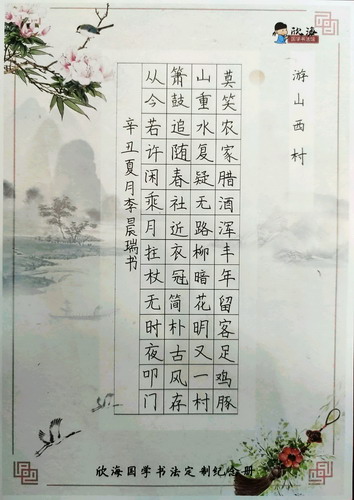 欣海
国学书法
游山西村
莫笑农家腊酒浑丰年留客足鸡豚
山重水复疑无路柳暗花明又一村
箫鼓追随春社近衣冠简朴古风存
从今若许闲乘月拄杖无时夜叩门
辛丑夏月李晨瑞书
欣海国学书法定制纪念册